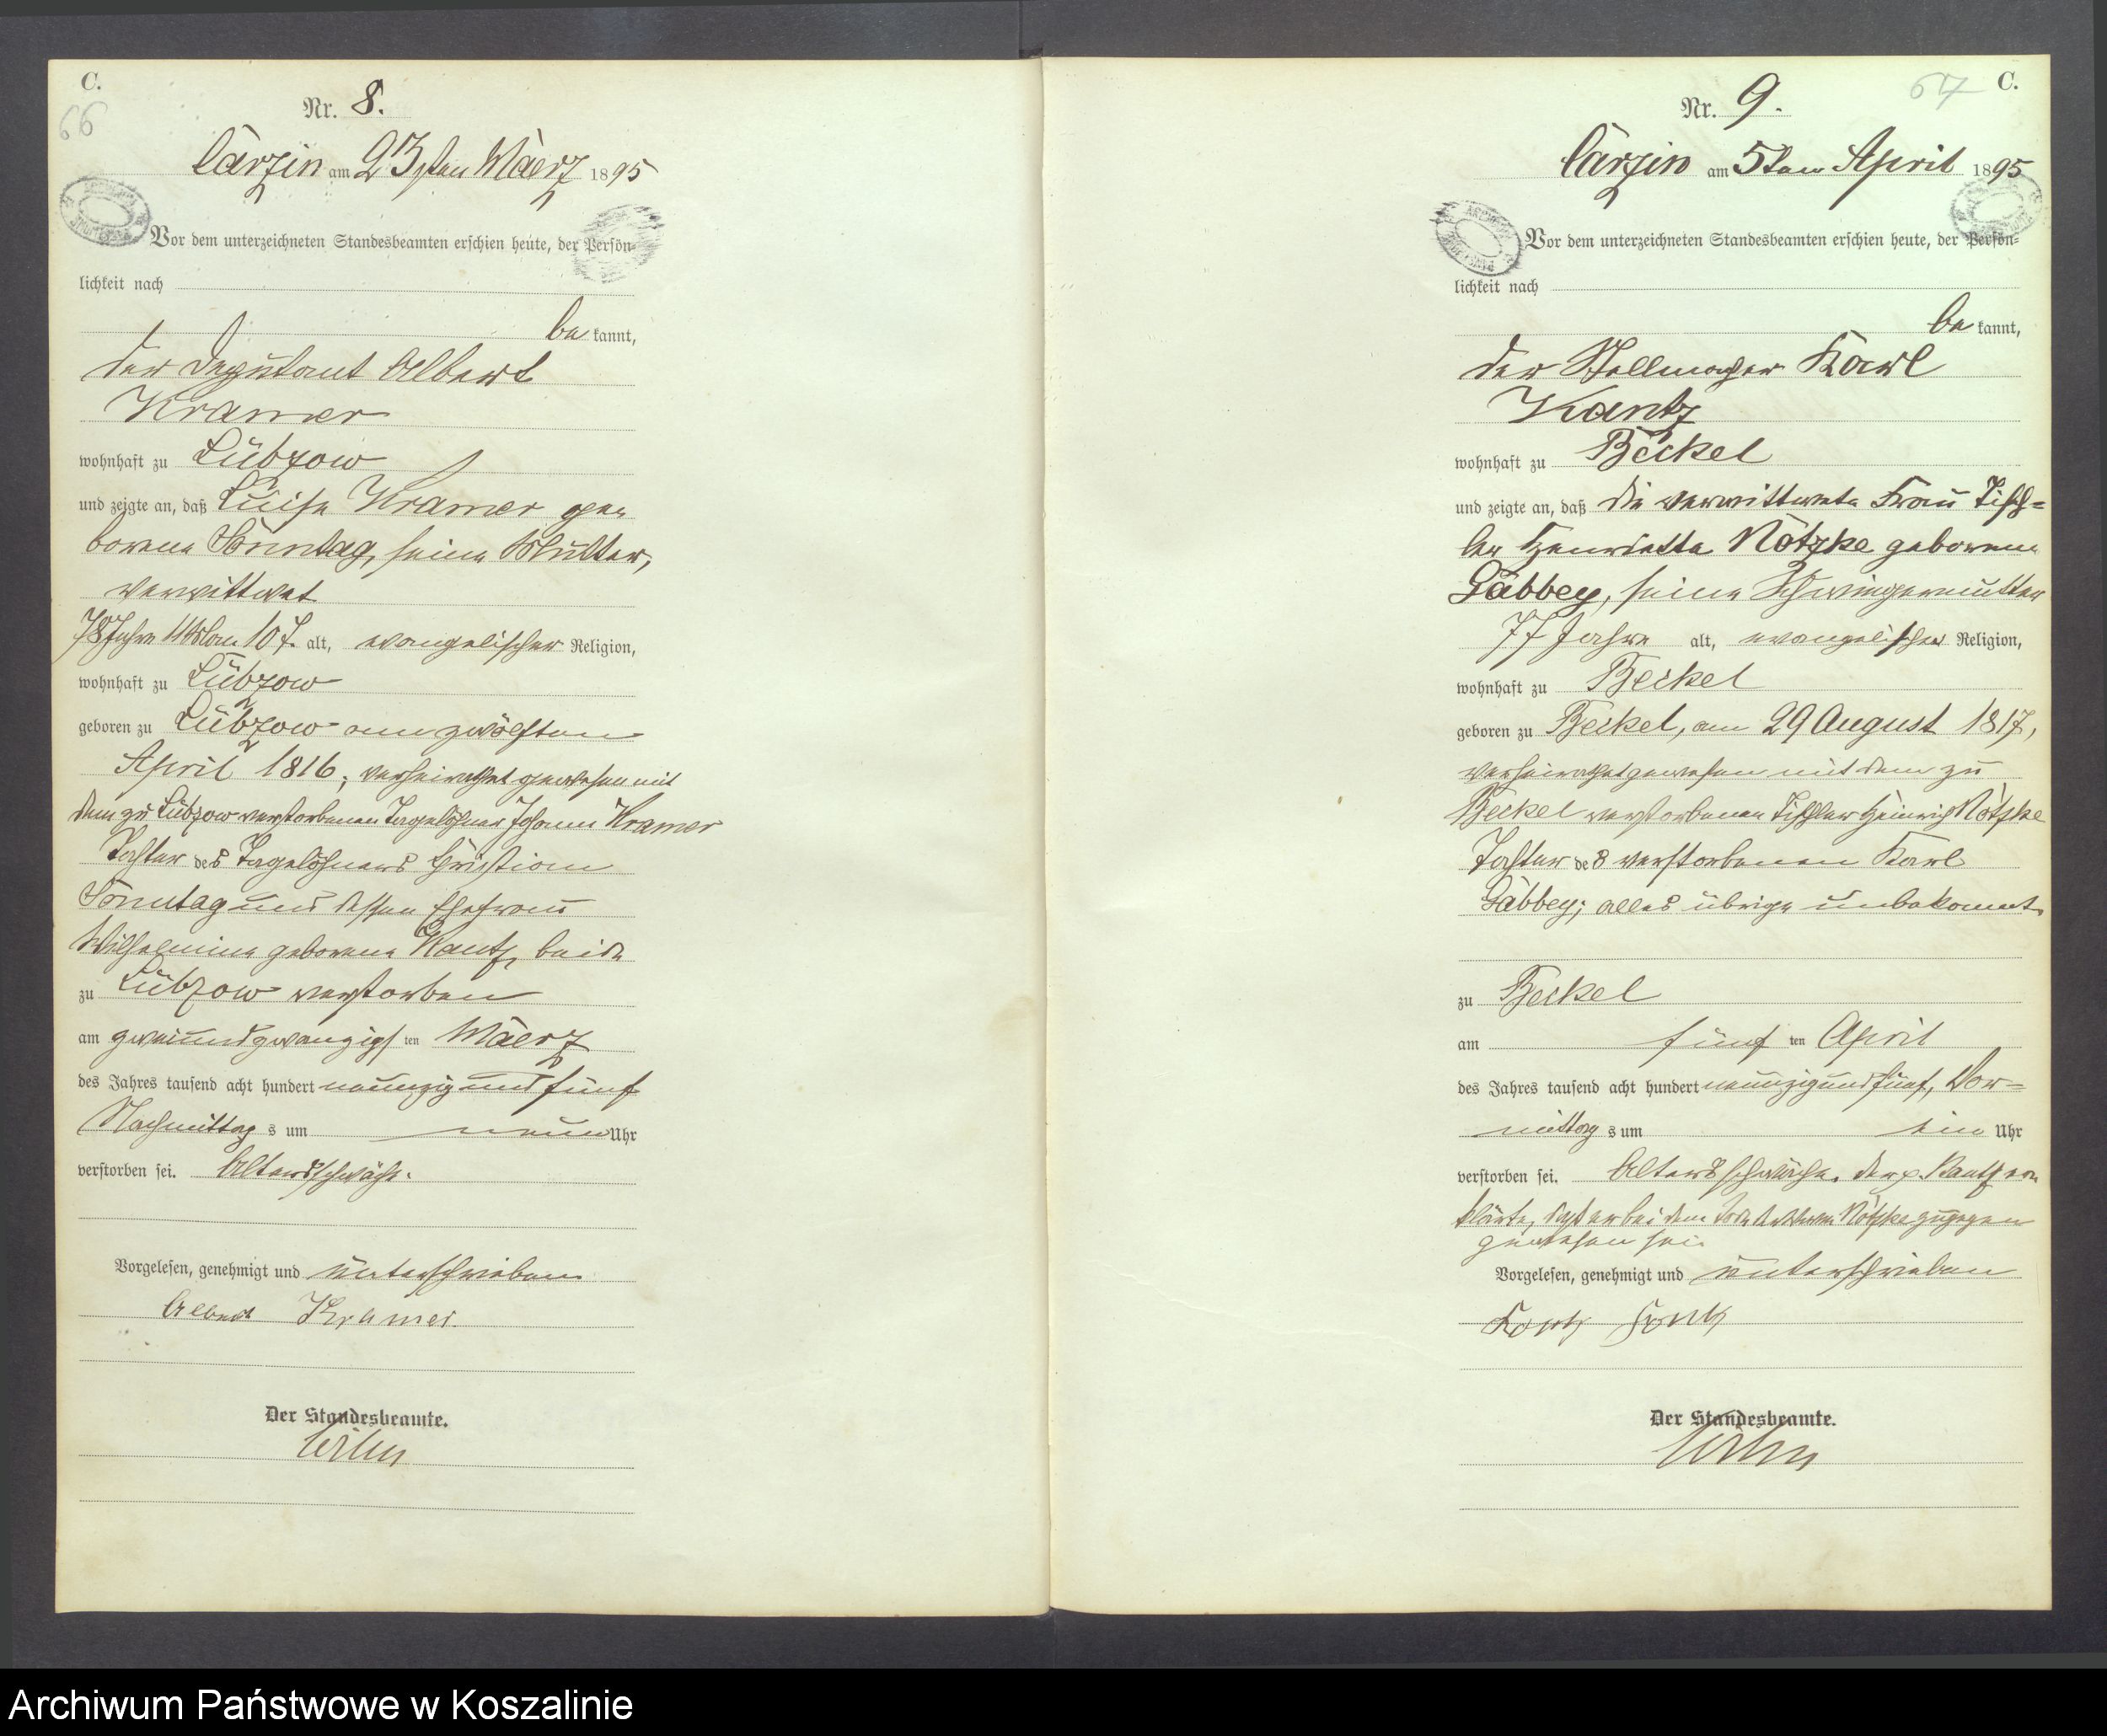 C.
66
Nr. 8.
Carzin am 23sten Maerz 1895
Vor dem unterzeichneten Standesbeamten erschien heute, der Persön-
lichkeit nach
be kannt,
der Deputant Albert
Kramer
wohnhaft zu Lübzow
und zeigte an, daß Luise Kramer ge
borene Sonntag, seine Mutter,
verwittwet
78 Jahre 11 Mon. 10 T. alt, evangelischer Religion,
wohnhaft zu Lübzow
geboren zu Lübzow am zwölften
April 1816; verheirathet gewesen mit
dem zu Lübzow verstorbenen Tagelöhner Johann Kramer
Tochter des Tagelöhners Christian
Sonntag und dessen Ehefrau
Wilhelmine geborene Kautz, beide
zu Lübzow verstorben
am zweiundzwanzigs ten Maerz
des Jahres tausend acht hundert neunzig und fünf
Nachmittag s um neun Uhr
verstorben sei. Altersschwäche.
Vorgelesen, genehmigt und unterschrieben
Albert Kramer.
Der Standesbeamte.
67
C.
Nr. 9.
Carzin am 5ten April 1895
Vor dem unterzeichneten Standesbeamten erschien heute, der Persön-
lichkeit nach
be kannt,
der Stellmacher Karl
Kantz
wohnhaft zu Beckel
und zeigte an, daß die verwittwete Frau Tisch-
ler Henriette Nötzke geborene
Gabbey, seine Schwiegermutter
77 Jahre alt, evangelischer Religion,
wohnhaft zu Beckel
geboren zu Beckel, am 29 August 1817,
verheirathet gewesen mit dem zu
Beckel verstorbenen Tischler Heinrich Nötzke
Tochter des verstorbenen Karl
Gabbey; alles übrige unbekannt
zu Beckel
am fünf ten April
des Jahres tausend acht hundert neunzig und fünf, Vor-
mittag s um ein Uhr
verstorben sei. Altersschwäche. Der p. Kautz er
klärte, daß er bei dem Tode der Nötzke zugegen
gewesen sei.
Vorgelesen, genehmigt und unterschrieben
Der Standesbeamte.
Archiwum Państwowe w Koszalinie